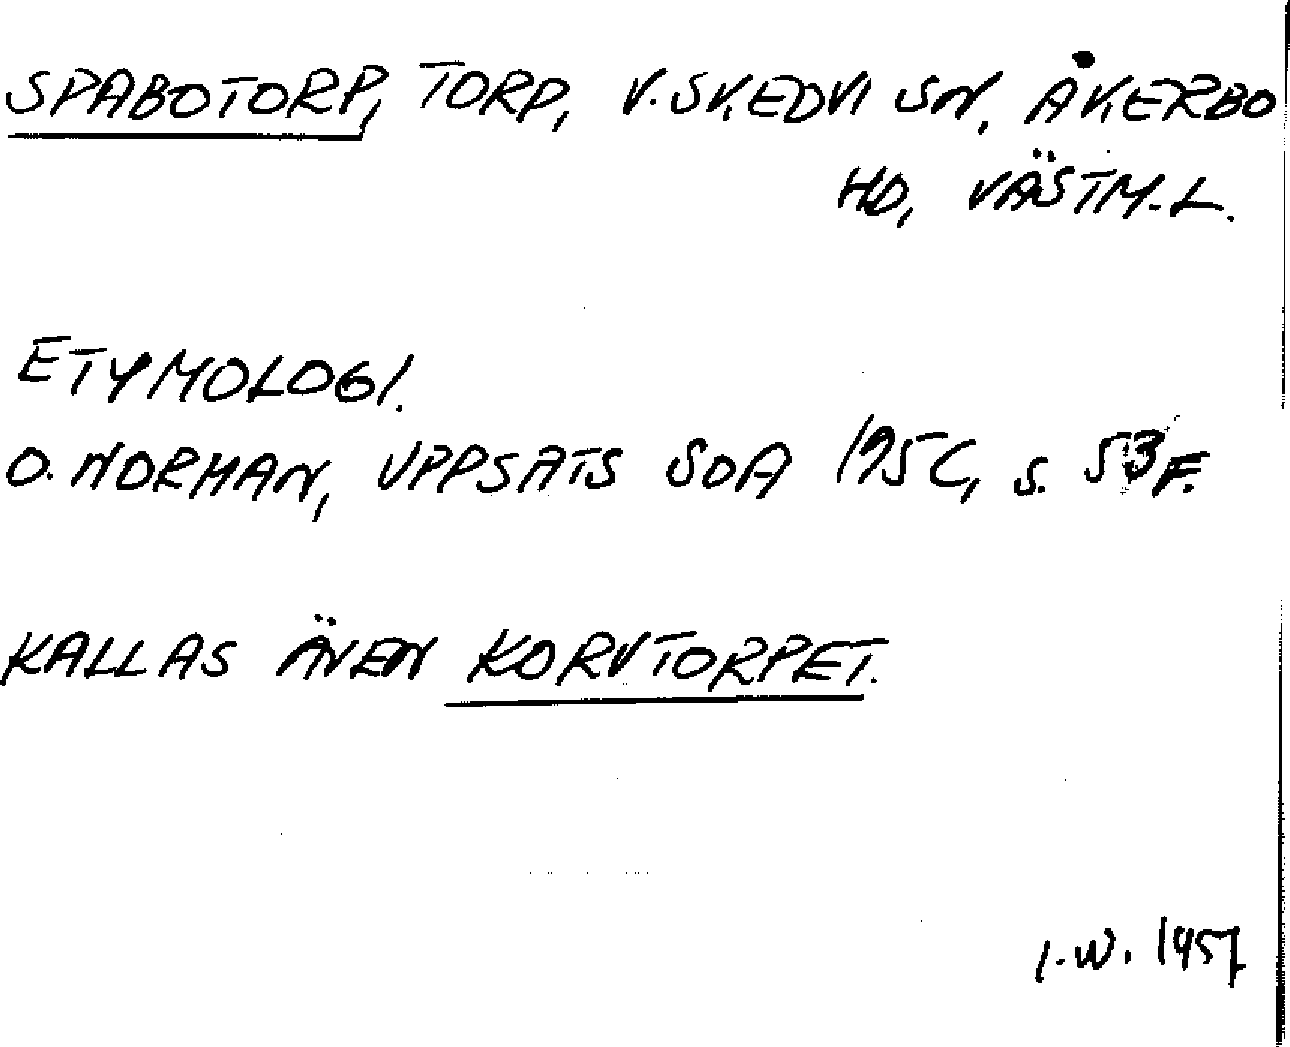 SPABOTORP, TORP, V. SKEDVI SN, ÅKERBO
HD, VÄSTM. L.
ETYMOLOGI.
O. NORMAN, UPPSATS SOA 1956, S. 53 F.
KALLAS ÄVEN KORVTORPET.
I.W. 1957